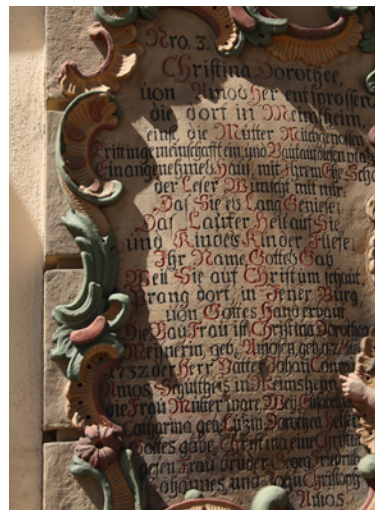 Nro. 3.
Christina Dorothee,
von Amos Her entsprossen
die dort in Meimsheim,
einst, die Mutter Milch genossen
Ein angenehmes Hauß, mit Ihrem Ehe Scha
der Leser Wünscht mit mir:
Daß Sie es Lang Genieset
Daß Lauter Heil auf Sie
und Kindes Kinder Fliese,
Ihr Name, Gottes Gab
Weil Sie auf Christum schaut,
Prang dort in Jener Burg,
von Gottes Hand erbaut
Die Bau Frau ist Christina Dorothea
Meÿnerin, geb. Amosen, geb.
1732 der Herr Vatter Johan Conrad
Amos Schultheis in Meimsheim
die Frau Mutter ware Weÿl.
Catharina, geb. Dorothea heiset
Gottes gabe, Christina eine Christin
deren Frau bruder Georg Friedrich
Johannes, und Johan Christoph
Amos